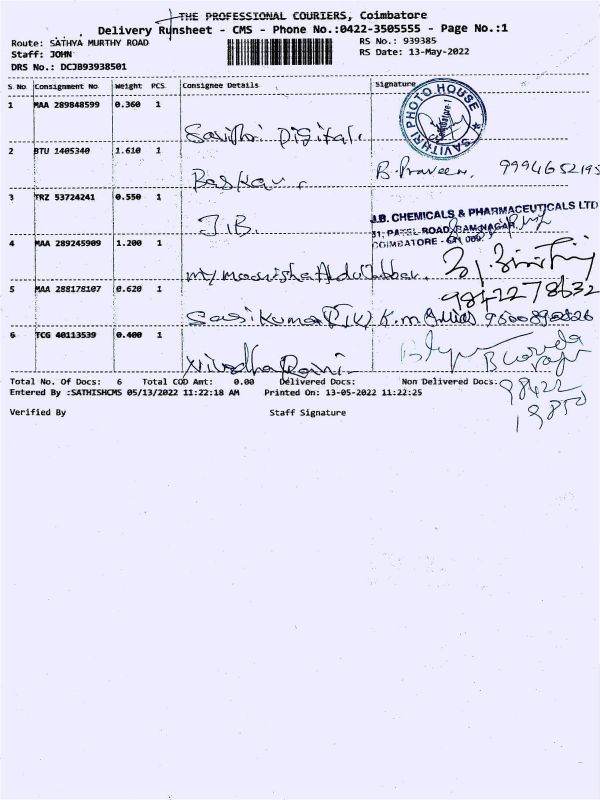 THE PROFESSIONAL COURIERS, Coimbatore
Delivery Runsheet - CMS - Phone No.:0422-3505555 - Page No.:1
Route: SATHYA MURTHY ROAD
RS No.: 939385
Staff: JOHN
RS Date: 13-May-2022
DRS No.: DCJB93938501
S No Consignment No Weight PCS Consignee Details Signature
1 MAA 289848599 0.360 1 Savithri Digital.
SAVITHRI PHOTO HOUSE
2 BTU 1405340 1.610 1 Baskar. B. Praveen, 9994652195
3 TRZ 53724241 0.550 1 J.B.
J.B. CHEMICALS & PHARMACEUTICALS LTD
31, PATEL ROAD, RAM NAGAR,
COIMBATORE - 641 009.
4 MAA 289245909 1.200 1
9842278632
5 MAA 288178107 0.620 1 Sasikumar
6 TCG 40113539 0.400 1
Total No. Of Docs: 6 Total COD Amt: 0.00 Delivered Docs: Non Delivered Docs:
98422
19850
Entered By :SATHISHCMS 05/13/2022 11:22:18 AM Printed On: 13-05-2022 11:22:25
Verified By Staff Signature